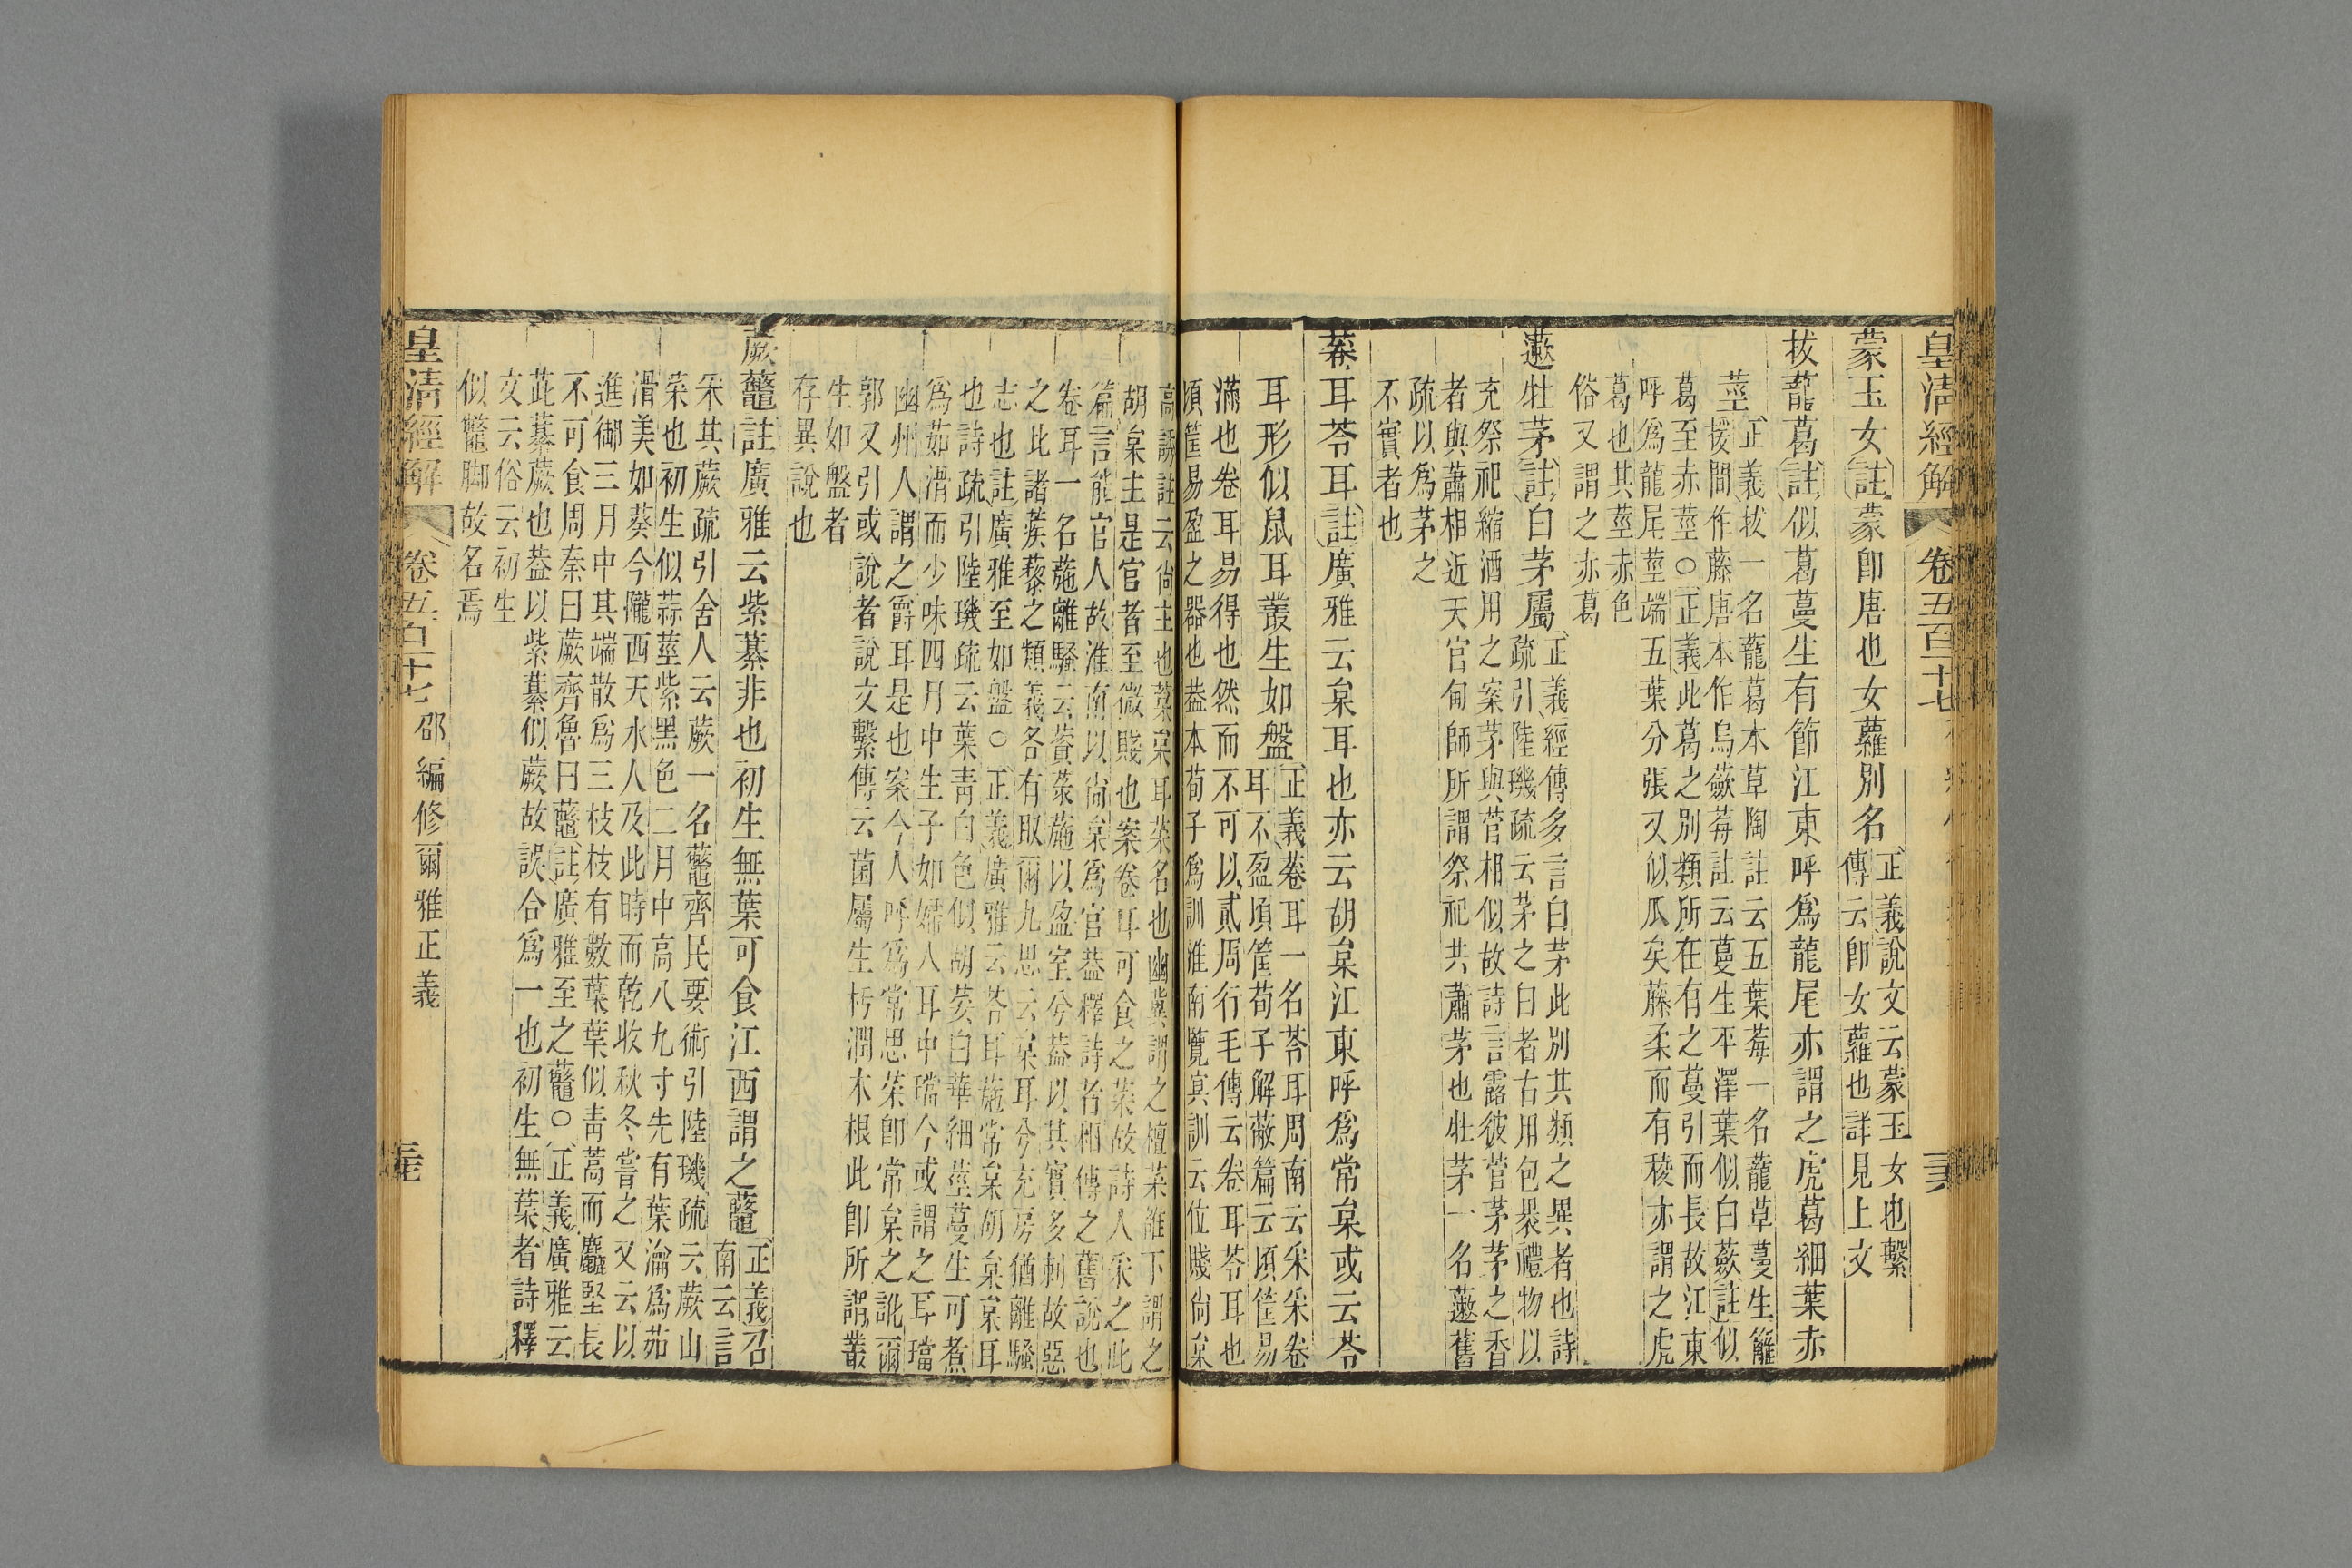 皇清經解 卷五百十七 三六
蒙玉女註蒙卽唐也女蘿別名正義說文云蒙玉女也繫
傳云卽女蘿也詳見上文
拔蘢葛註似葛蔓生有節江東呼爲龍尾亦謂之虎葛細葉赤
莖正義拔一名蘢葛本草陶註云五葉莓一名蘢草蔓生籬
援間作藤唐本作烏蘞莓註云蔓生平澤葉似白蘞註似
葛至赤莖○正義此葛之別類所在有之蔓引而長故江東
呼爲龍尾莖端五葉分張又似瓜矣藤柔而有稜亦謂之虎
葛也其莖赤色
俗又謂之赤葛
藗牡茅註白茅屬正義經傳多言白茅此別其類之異者也詩
疏引陸璣疏云茅之白者古用包裹禮物以
充祭祀縮酒用之案茅與菅相似故詩言露彼菅茅茅之香
者與蕭相近天官甸師所謂祭祀共蕭茅也牡茅一名藗舊
疏以爲茅之
不實者也
菤耳苓耳註廣雅云枲耳也亦云胡枲江東呼爲常枲或云苓
耳形似鼠耳叢生如盤正義菤耳一名苓耳周南云采采卷
耳不盈頃筐荀子解蔽篇云頃筐易
滿也卷耳易得也然而不可以貳周行毛傳云卷耳苓耳也
頃筐易盈之器也葢本荀子爲訓淮南覽冥訓云位賤尙枲
高誘註云尙主也菜枲耳菜名也幽冀謂之檀菜雒下謂之
胡枲主是官者至微賤也案卷耳可食之菜故詩人采之此
篇言能官人故淮南以尙枲爲官葢釋詩者相傳之舊說也
卷耳一名葹離騷云薋菉葹以盈室兮葢以其實多刺故惡
之比諸蒺藜之類義各有取爾九思云枲耳兮充房猶離騷
志也註廣雅至如盤○正義廣雅云苓耳葹常枲胡枲枲耳
也詩疏引陸璣疏云葉靑白色似胡荽白華細莖蔓生可煮
爲茹滑而少味四月中生子如婦人耳中璫今或謂之耳璫
幽州人謂之爵耳是也案今人呼爲常思菜卽常枲之訛爾
郭又引或說者說文繫傳云菌屬生朽潤木根此卽所謂叢
生如盤者
存異說也
蕨虌註廣雅云紫綦非也初生無葉可食江西謂之虌正義召
南云言
采其蕨疏引舍人云蕨一名虌齊民要術引陸璣疏云蕨山
菜也初生似蒜莖紫黑色二月中高八九寸先有葉瀹爲茹
滑美如葵今隴西天水人及此時而乾收秋冬嘗之又云以
進御三月中其端散爲三枝枝有數葉葉似靑蒿而麤堅長
不可食周秦曰蕨齊魯曰虌註廣雅至之虌○正義廣雅云
茈綦蕨也葢以紫綦似蕨故誤合爲一也初生無葉者詩釋
文云俗云初生
似鼈脚故名焉
皇清經解 卷五百十七 邵編修爾雅正義 三七